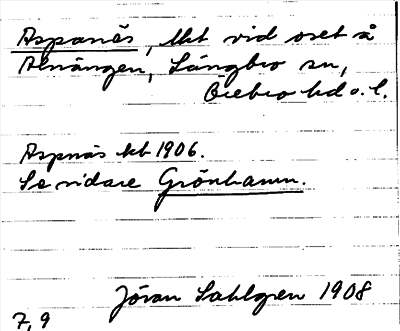 Aspanäs, lht vid oset å
Alnängen, Längbro sn,
Örebro hd o. l.
Aspnäs kb 1906.
Se vidare Grönhamn.
Jöran Sahlgren 1908
7,9